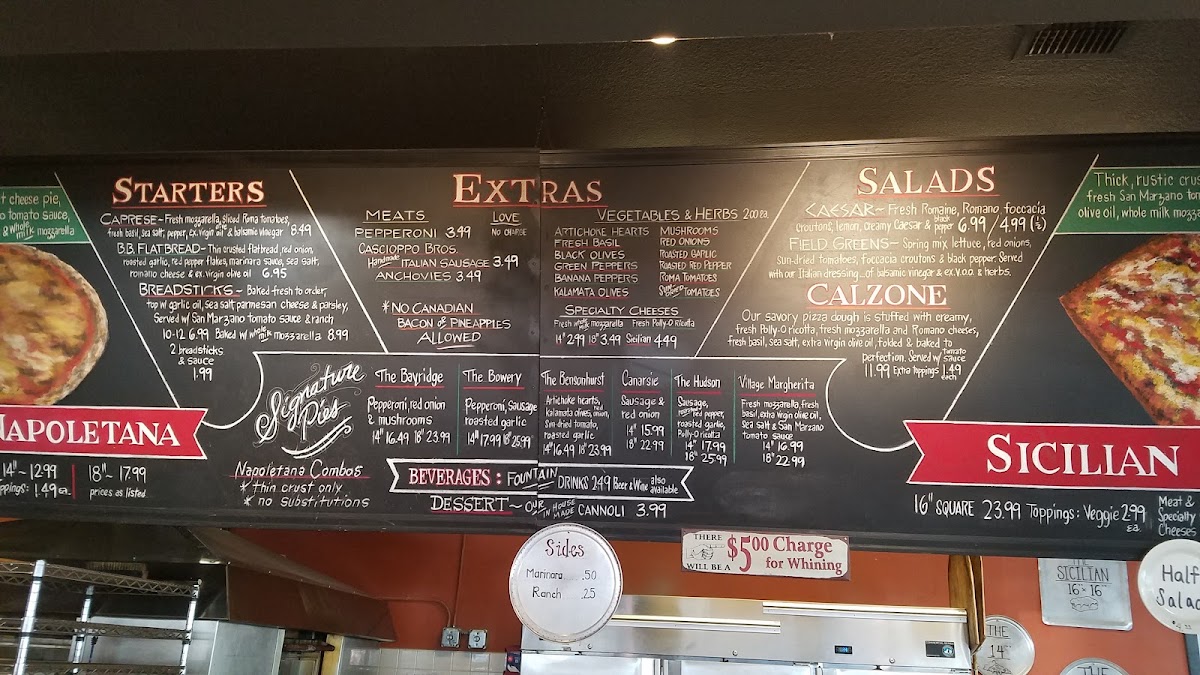 t cheese pie,
o tomato sauce,
& whole milk mozzarella
NAPOLETANA
14"~ 12.99
ppings: 1.49 ea.
18"~ 17.99
prices as listed
STARTERS
CAPRESE~ Fresh mozzarella, sliced Roma tomatoes,
fresh basil, sea salt, pepper, ex. virgin olive oil & balsamic vinegar 8.49
B.B. FLATBREAD~ Thin crusted flatbread, red onion,
roasted garlic, red pepper flakes, marinara sauce, sea salt,
romano cheese & ex. virgin olive oil 6.95
BREADSTICKS~ Baked fresh to order,
top w/ garlic oil, sea salt, parmesan cheese & parsley,
Served w/ San Marzano tomato sauce & ranch
10-12 6.99 Baked w/ whole milk mozzarella 8.99
2 breadsticks
& sauce
1.99
EXTRAS
MEATS
PEPPERONI 3.49
CASCIOPPO BROS.
Handmade ITALIAN SAUSAGE 3.49
ANCHOVIES 3.49
LOVE
NO CHARGE
*NO CANADIAN
BACON or PINEAPPLES
ALLOWED
VEGETABLES & HERBS 2.00 ea.
ARTICHOKE HEARTS
FRESH BASIL
BLACK OLIVES
GREEN PEPPERS
BANANA PEPPERS
KALAMATA OLIVES
MUSHROOMS
RED ONIONS
ROASTED GARLIC
ROASTED RED PEPPER
ROMA TOMATOES
SUN DRIED TOMATOES
SPECIALTY CHEESES
Fresh whole milk mozzarella Fresh Polly-O ricotta
14" 2.99 18" 3.49 Sicilian 4.49
SALADS
CAESAR~ Fresh Romaine, Romano, foccacia
croutons, lemon, creamy Caesar & black pepper 6.99 / 4.99 (½)
FIELD GREENS~ Spring mix lettuce, red onions,
sun-dried tomatoes, foccacia croutons & black pepper. Served
with our Italian dressing...of balsamic vinegar & ex.v.o.o. & herbs.
CALZONE
Our savory pizza dough is stuffed with creamy,
fresh Polly-O ricotta, fresh mozzarella and Romano cheeses,
fresh basil, sea salt, extra virgin olive oil, folded & baked to
perfection. Served w/ Tomato Sauce
11.99 Extra toppings 1.49 each
Signature
Pies
Napoletana Combos
* thin crust only
* no substitutions
The Bayridge
Pepperoni, red onion
& mushrooms
14" 16.49 18" 23.99
The Bowery
Pepperoni, Sausage
roasted garlic
14" 17.99 18" 25.99
The Bensonhurst
Artichoke hearts,
kalamata olives, red onion,
Sun-dried tomato,
roasted garlic
14" 16.49 18" 23.99
Canarsie
Sausage &
red onion
14" 15.99
18" 22.99
The Hudson
Sausage,
roasted red pepper,
roasted garlic,
Polly-O ricotta
14" 17.99
18" 25.99
Village Margherita
Fresh mozzarella, fresh
basil, extra virgin olive oil,
sea salt & San Marzano
tomato sauce
14" 16.99
18" 22.99
BEVERAGES: FOUNTAIN DRINKS 2.49 Beer & Wine also available
DESSERT~ OUR IN HOUSE MADE CANNOLI 3.99
Thick, rustic crus
fresh San Marzano tom
olive oil, whole milk moz
SICILIAN
16" SQUARE 23.99 Toppings: Veggie 2.99 ea.
Meat &
Specialty
Cheeses
THERE WILL BE A $5.00 Charge
for Whining
Sides
Marinara .50
Ranch .25
THE
SICILIAN
16" x 16"
Half
Salad
THE
14"
THE